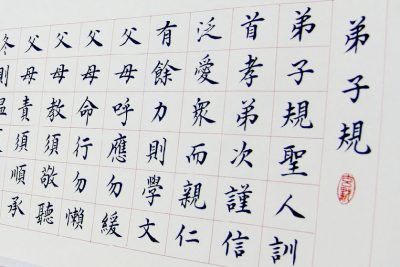 弟子規
弟子規聖人訓
首孝弟次謹信
泛愛衆而親仁
有餘力則學文
父母呼應勿緩
父母命行勿懶
父母教須敬聽
父母責須順承
冬則